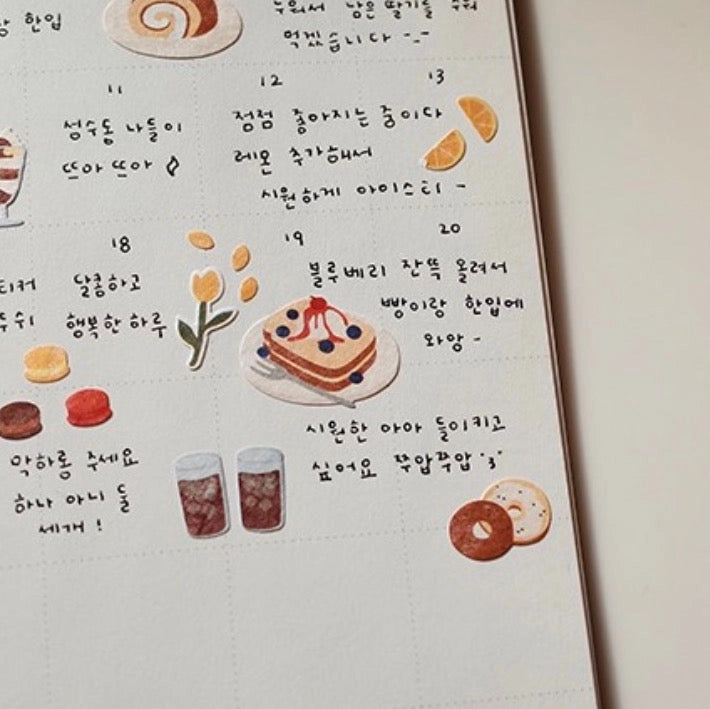 한입
누워서 남은 딸기를
먹겠습니다 -_-
11
성수동 나들이
뜨아 뜨아
12
13
점점 좋아지는 중이다
레몬 추가해서
시원하게 아이스티 -
18
달콤하고
행복한 하루
19
20
블루베리 잔뜩 올려서
빵이랑 한입에
와앙 -
막하롱 주세요
하나 아니 둘
세개 !
시원한 아아 들이키고
싶어요 쭈압쭈압 '3'